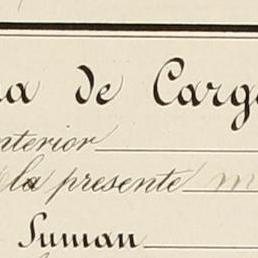 de Carg
nterior
la presente m
Suman